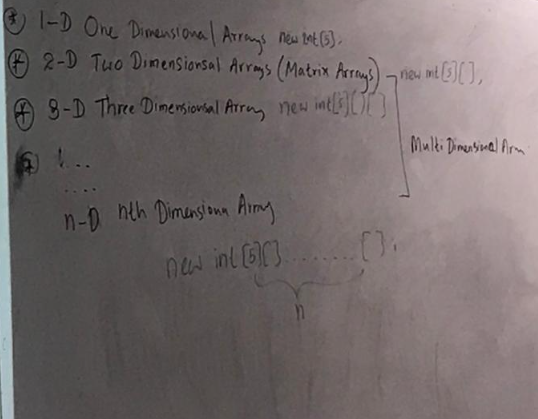 1-D One Dimensional Arrays new int[5];
2-D Two Dimensionsal Arrays (Matrix Arrays) new int[5][];
3-D Three Dimensionsal Array new int[5][][]
Multi Dimensional Arra
....
n-D nth Dimensiona Array
new int[5][].......[];
n